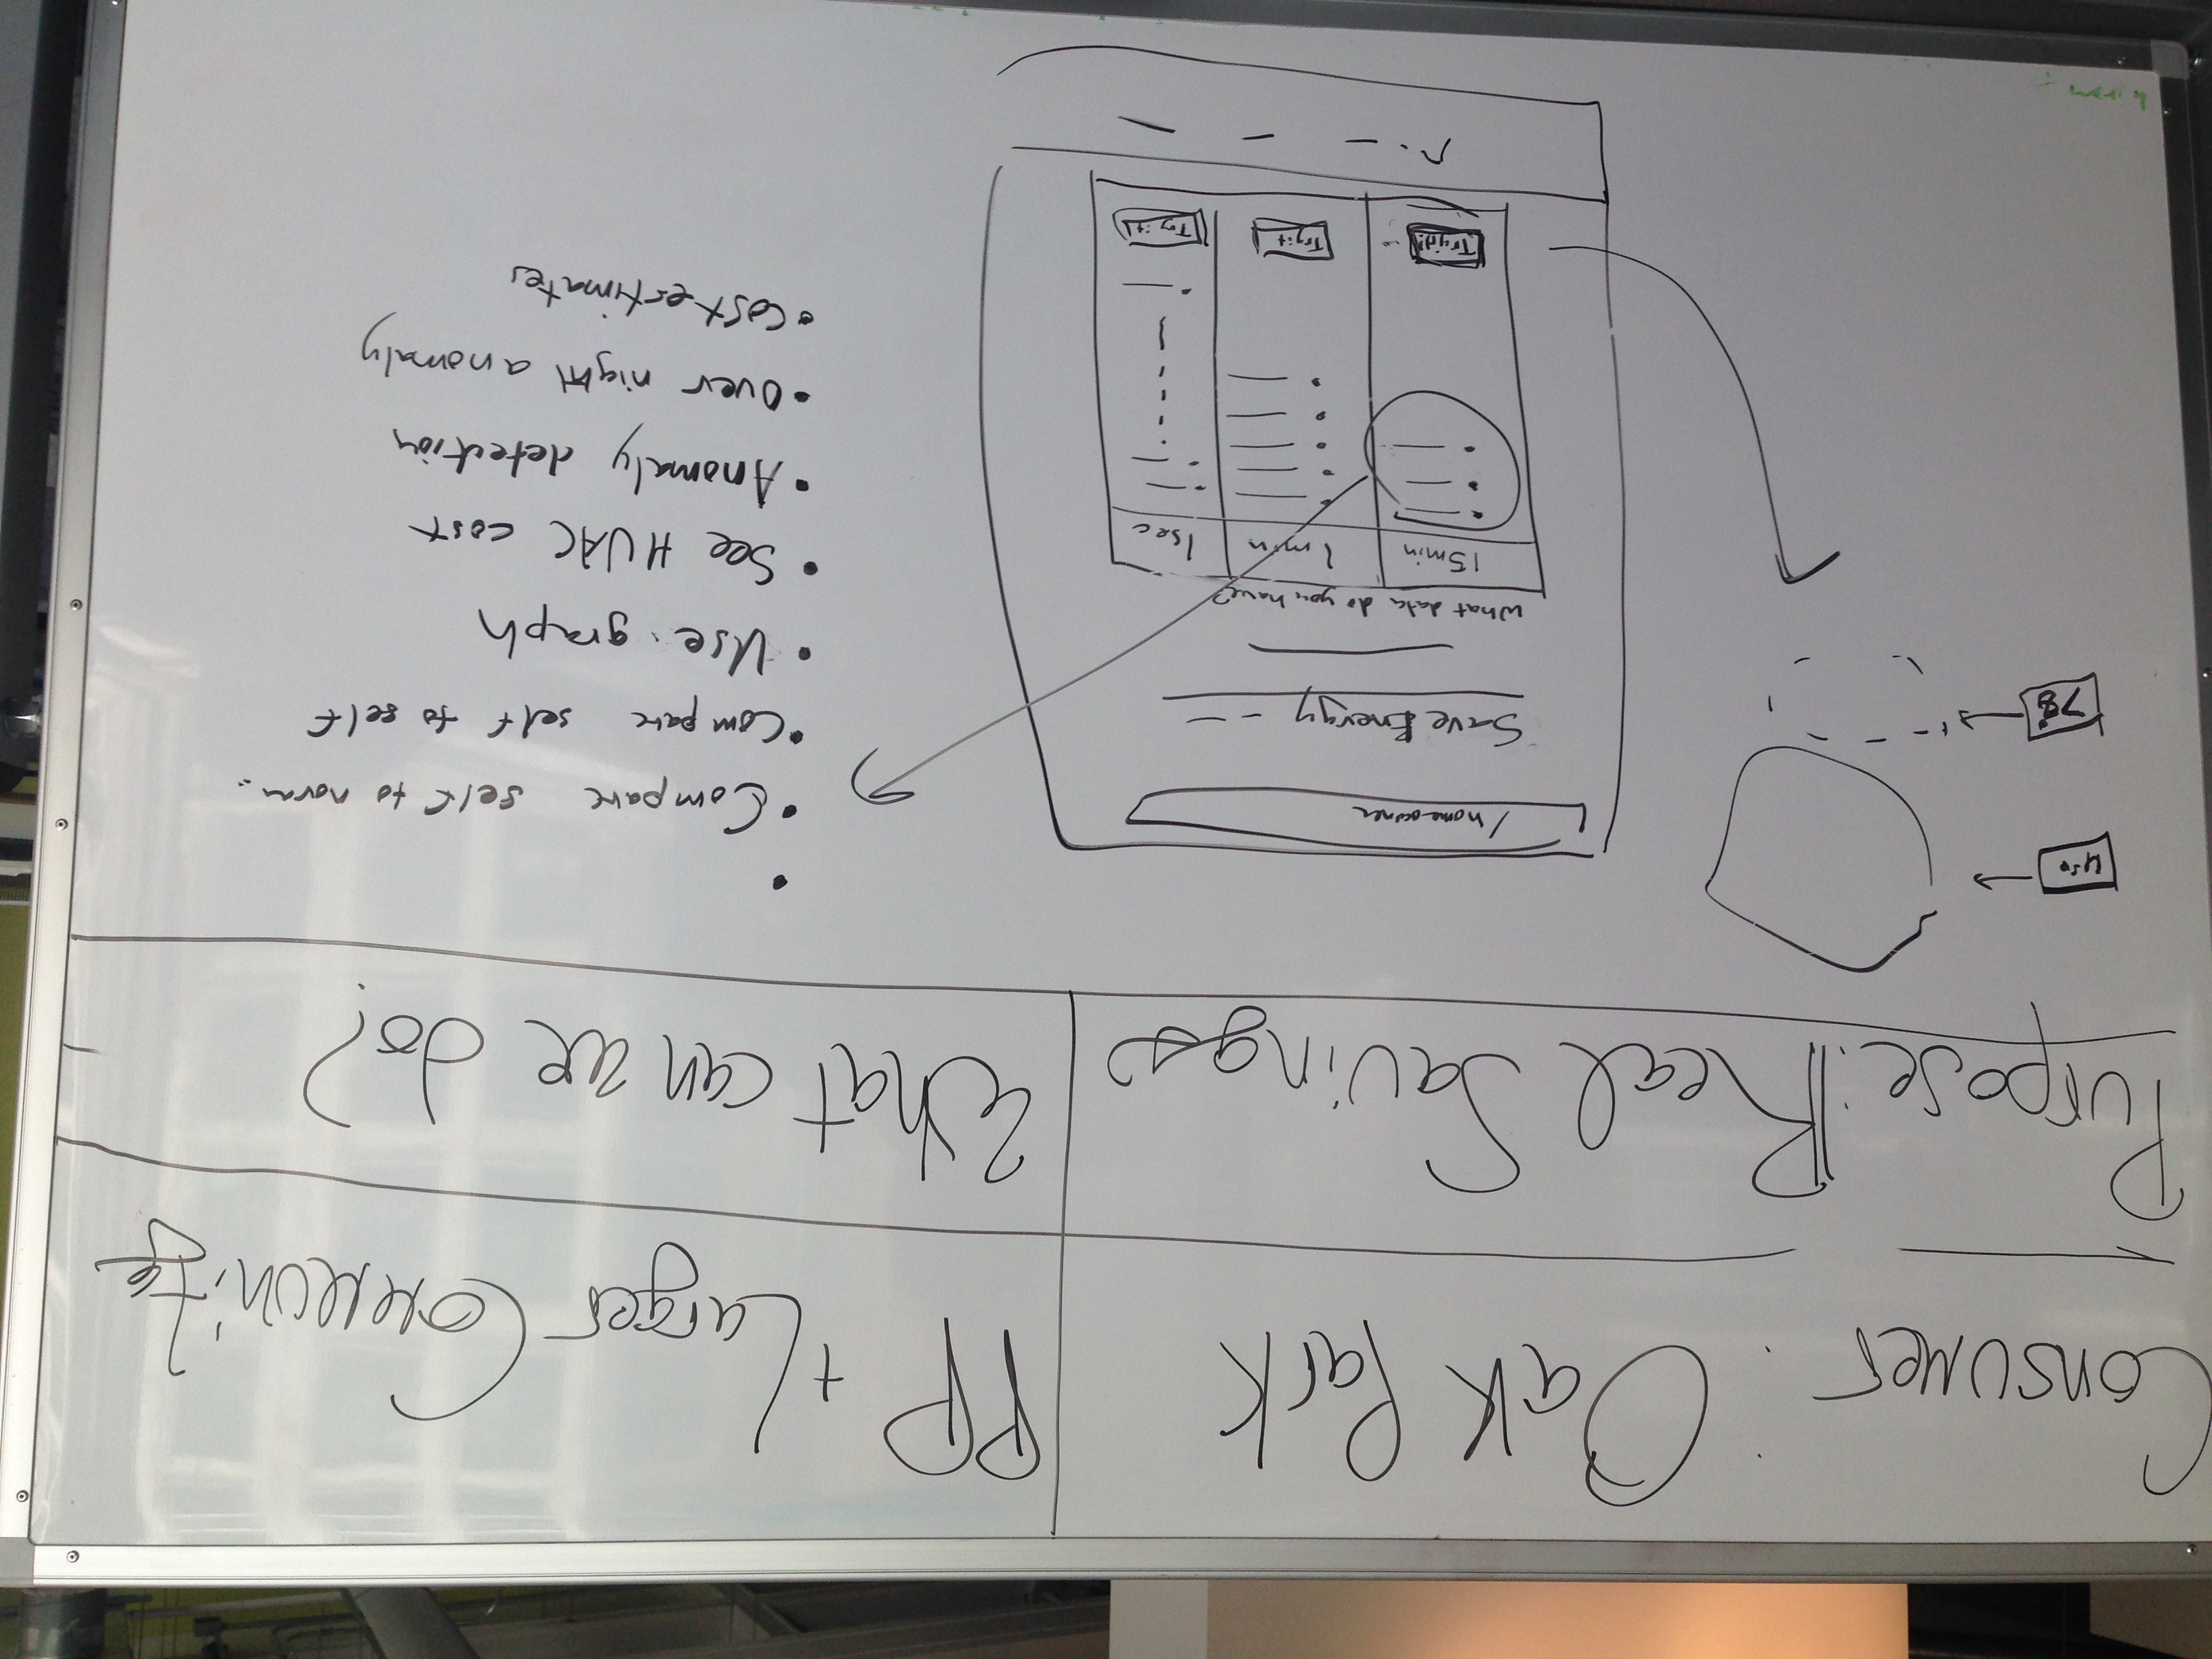 Consumer: Oak Park
PP + Larger Community
Purpose: Real Savings
What can we do?
Use
78°
/homeowner
Save Energy
What data do you have?
15min
1 min
1sec
Try it!
Try it
Try it!
• Compare self to norm.
• Compare self to self
• Use graph
• See HVAC cost
• Anomaly detection
• Over night anomaly
• Cost estimates